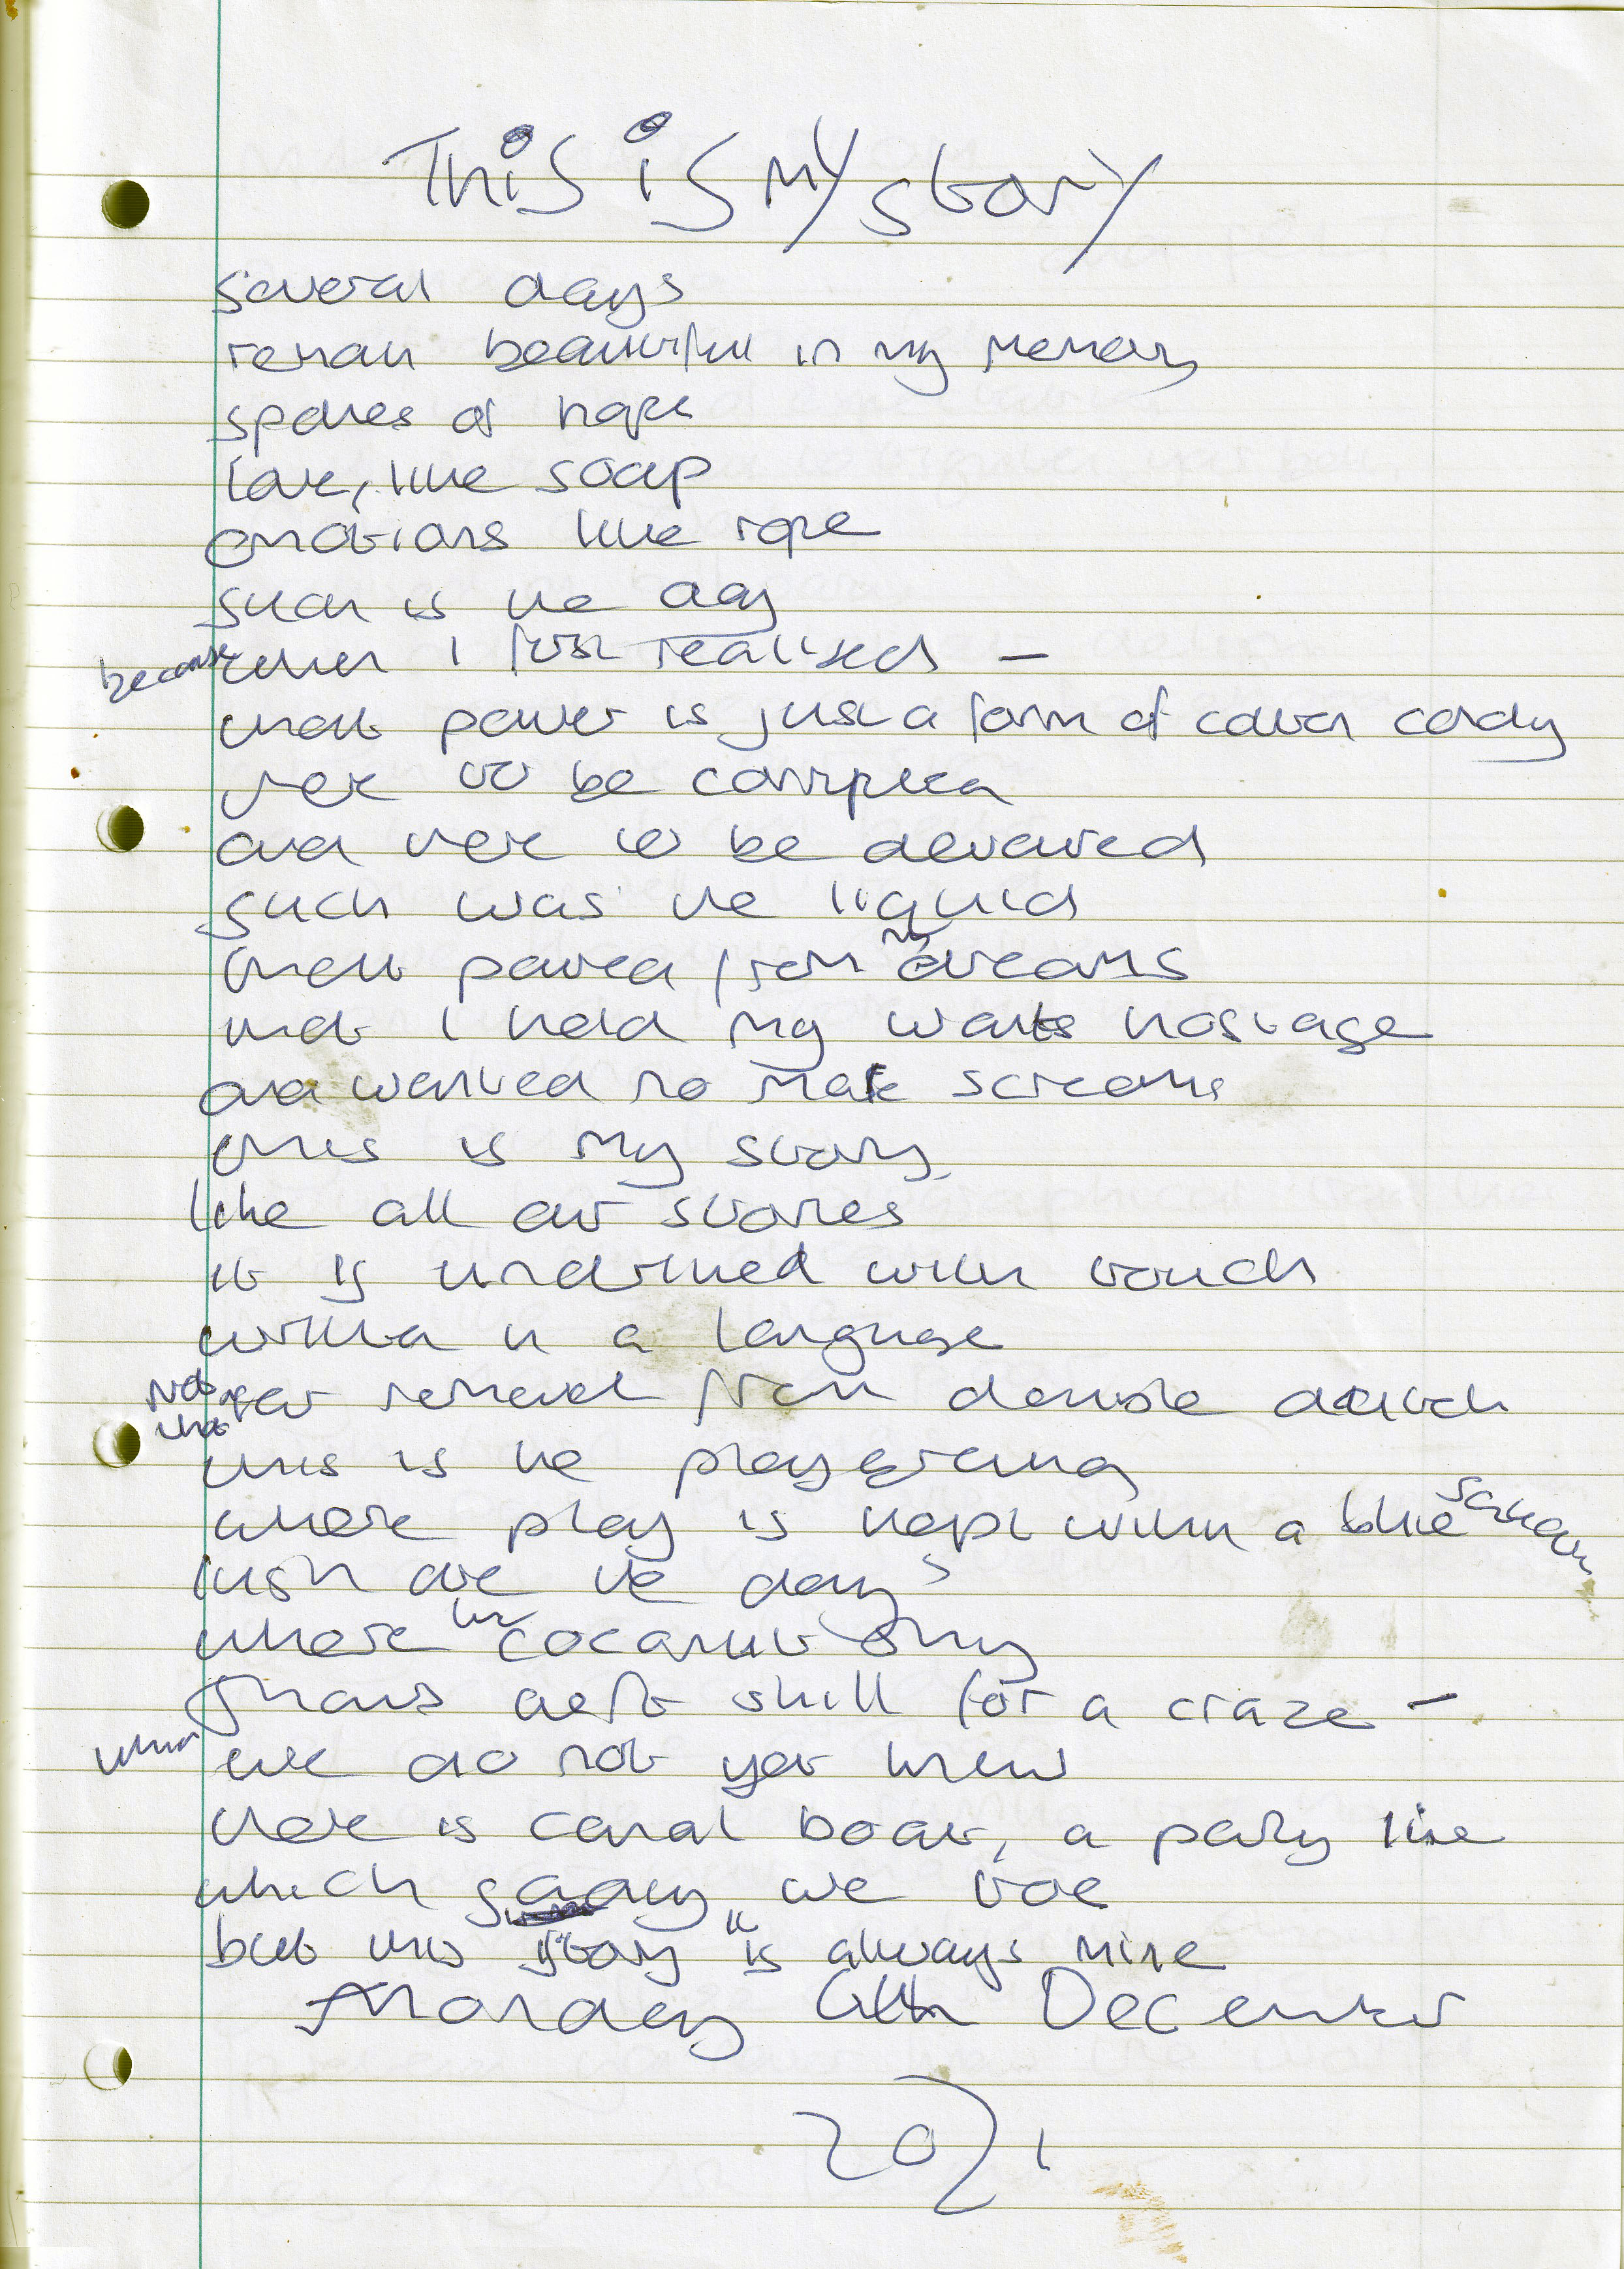 This is my story
several days
remain beautiful in my memory
spores of hope
love, like soap
emotions like rope
such is the day
because when I first realised –
that power is just a form of cotton candy
there to be corrupted
and there to be devoured
such was the liquid
that poured from my dreams
that I held my wants hostage
and wanted no more screams
this is my story
like all our stories
it is underlined with touch
written in a language
not that far removed from double dutch
this is the playground
where play is kept within a blue
lush are the days
where the coconut shy
deft skill for a craze –
we do not yet know
there is canal boat, a party line
which sadly we toe
but this "story" is always mine
Monday 6th December
2021